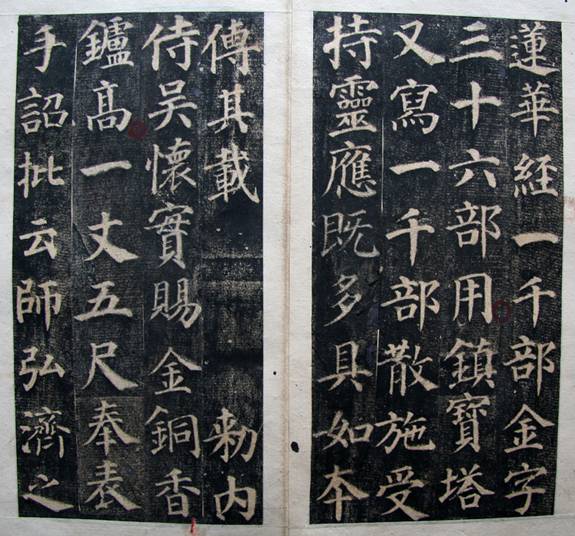 蓮華經一千部金字
三十六部用鎮寶塔
又寫一千部散施受
持靈應既多具如本
傳其載 勑内
侍吴懷實賜金銅香
鑪髙一丈五尺奉表
手詔批云師弘濟之